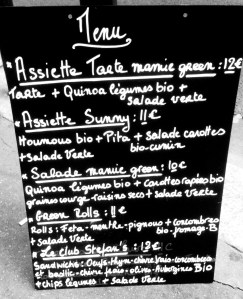 Menu
* Assiette Tarte mamie green : 12€
Tarte + Quinoa légumes bio +
salade verte
* Assiette Sunny : 11€
Houmous bio + Pita + salade carottes
+ salade verte bio-cumin
* Salade mamie green : 10€
Quinoa légumes bio + carottes rapées bio
graines courge-raisins secs + salade verte
* Green Rolls : 11€
Rolls : Feta-menthe-pignous + concombres
+ salade verte bio-fromage-B
* Le club Stefan's : 13€
Sandwichs : Oeufs-thym-chèvre frais-concombres
et basilic-chèvre frais-olive-Aubergines BIO
+ chips légumes + salade Verte